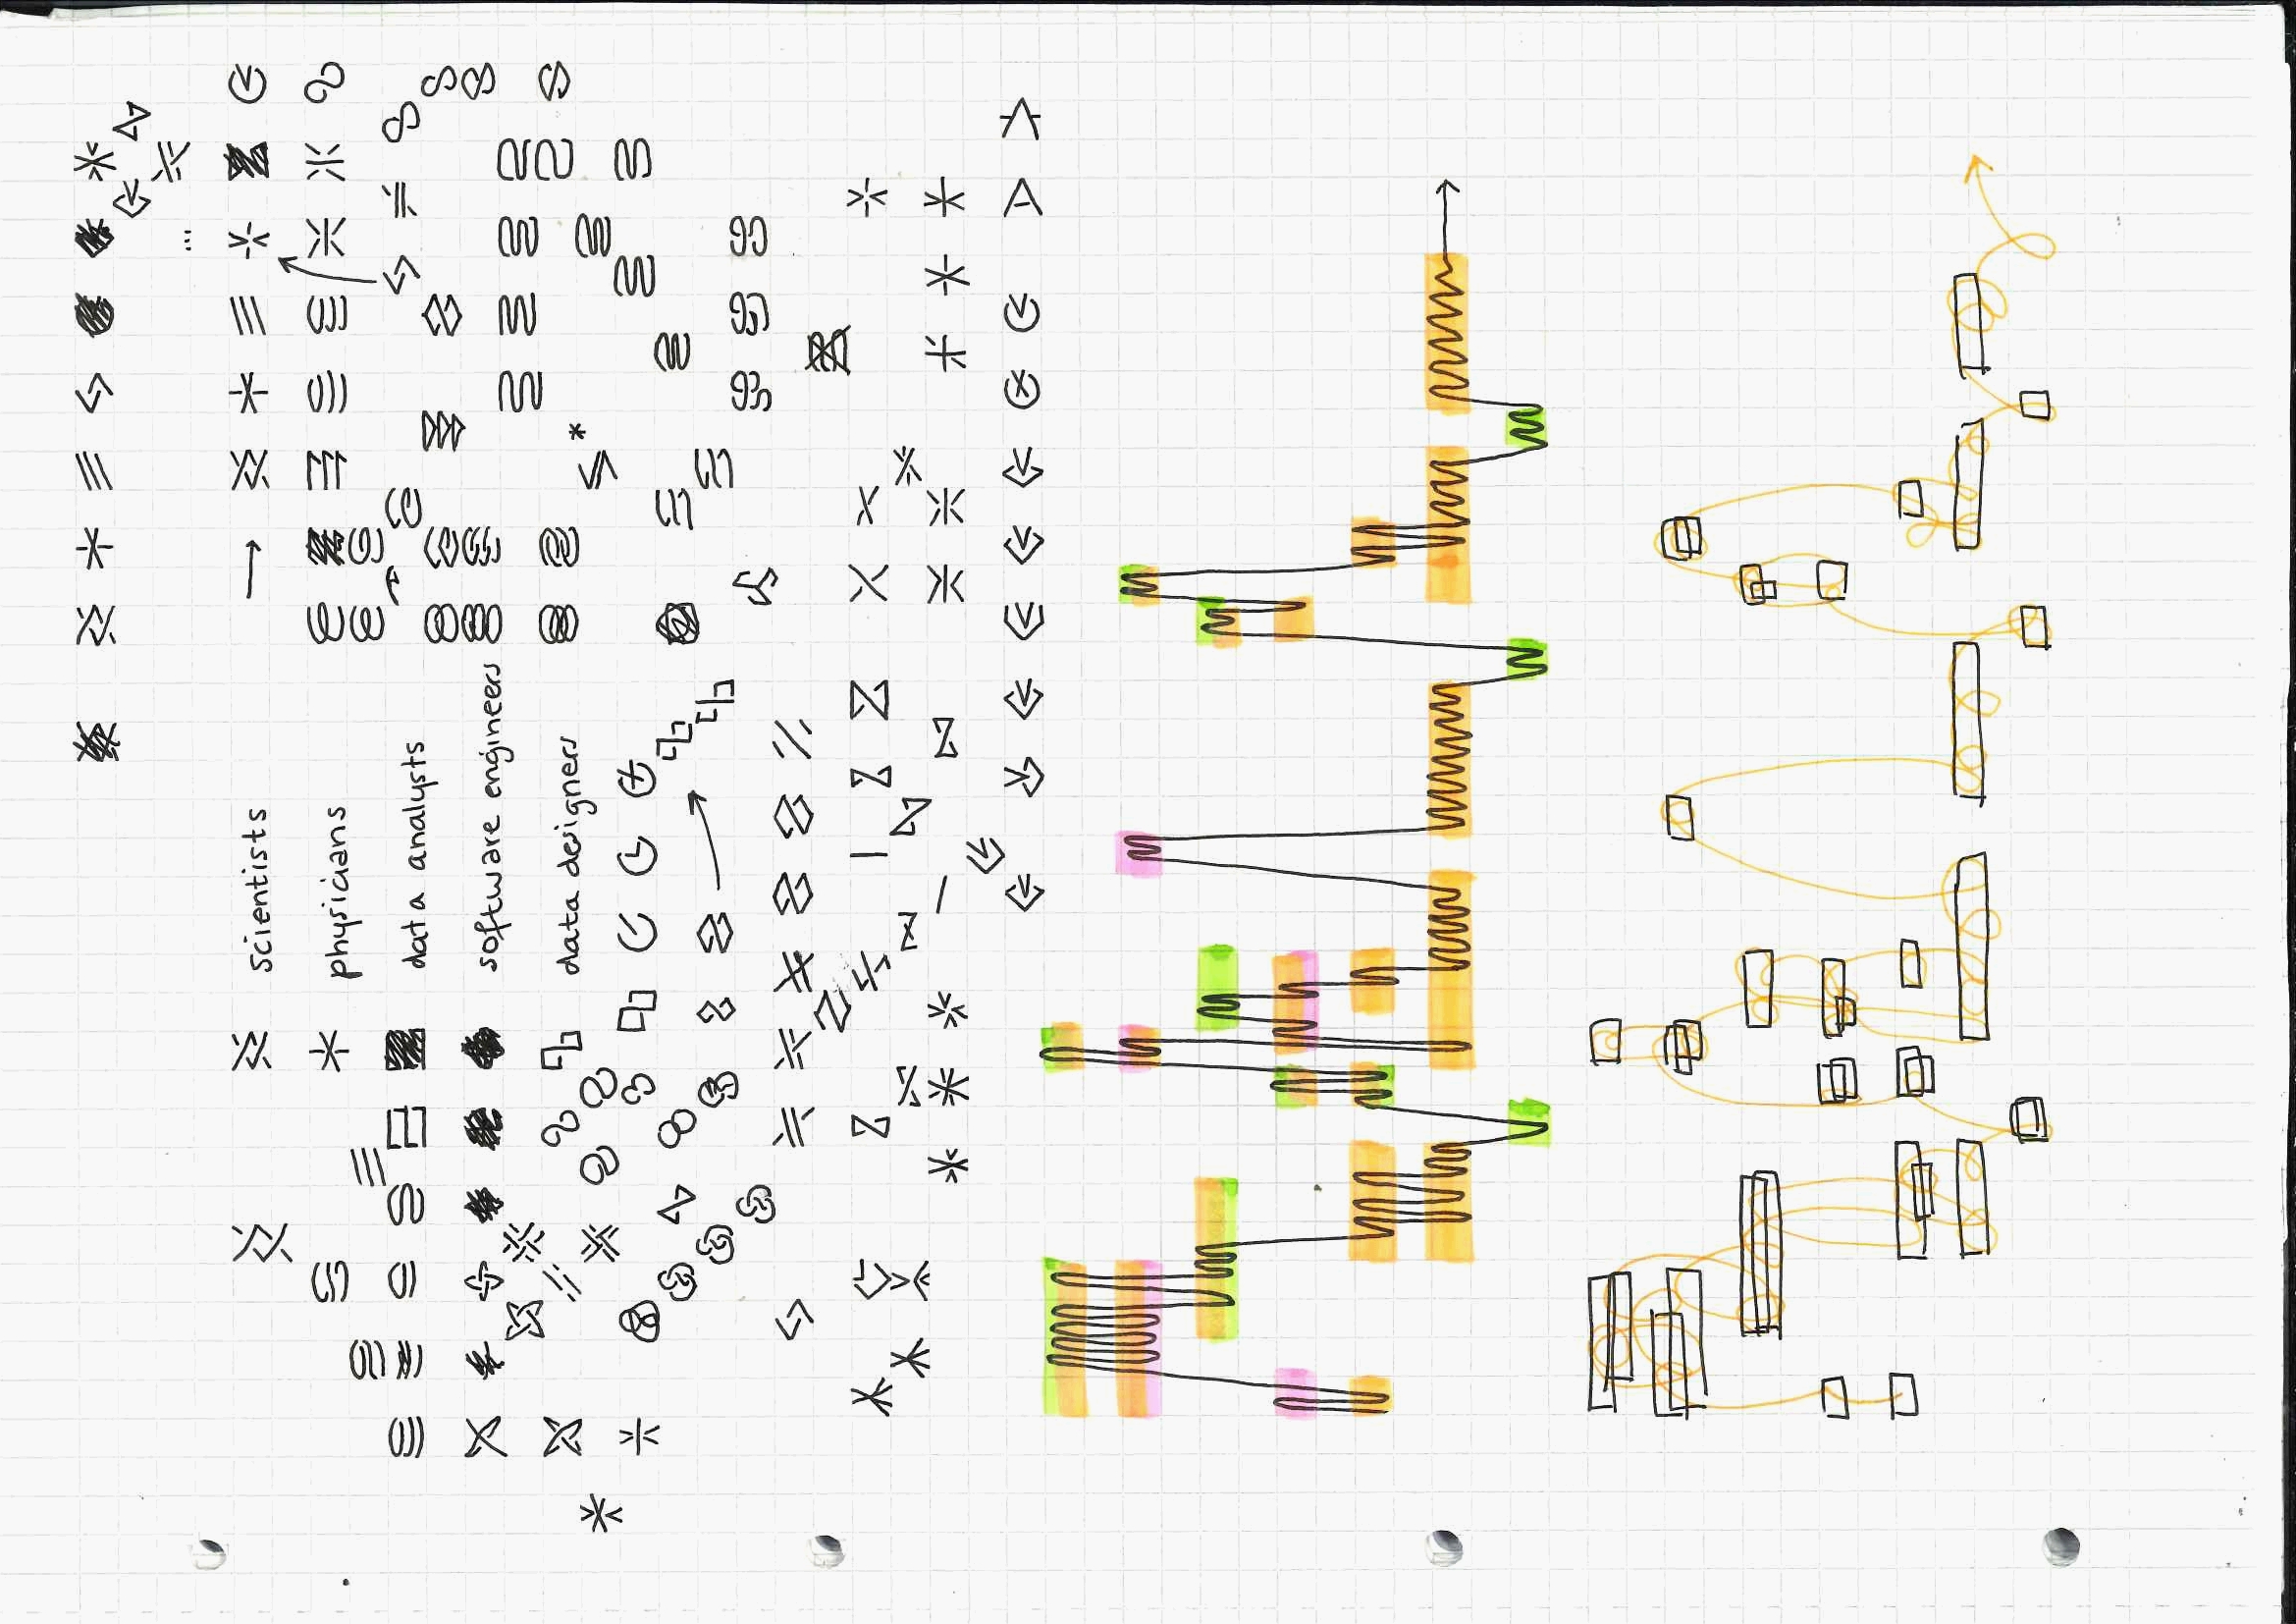 scientists
physicians
data analysts
software engineers
data designers